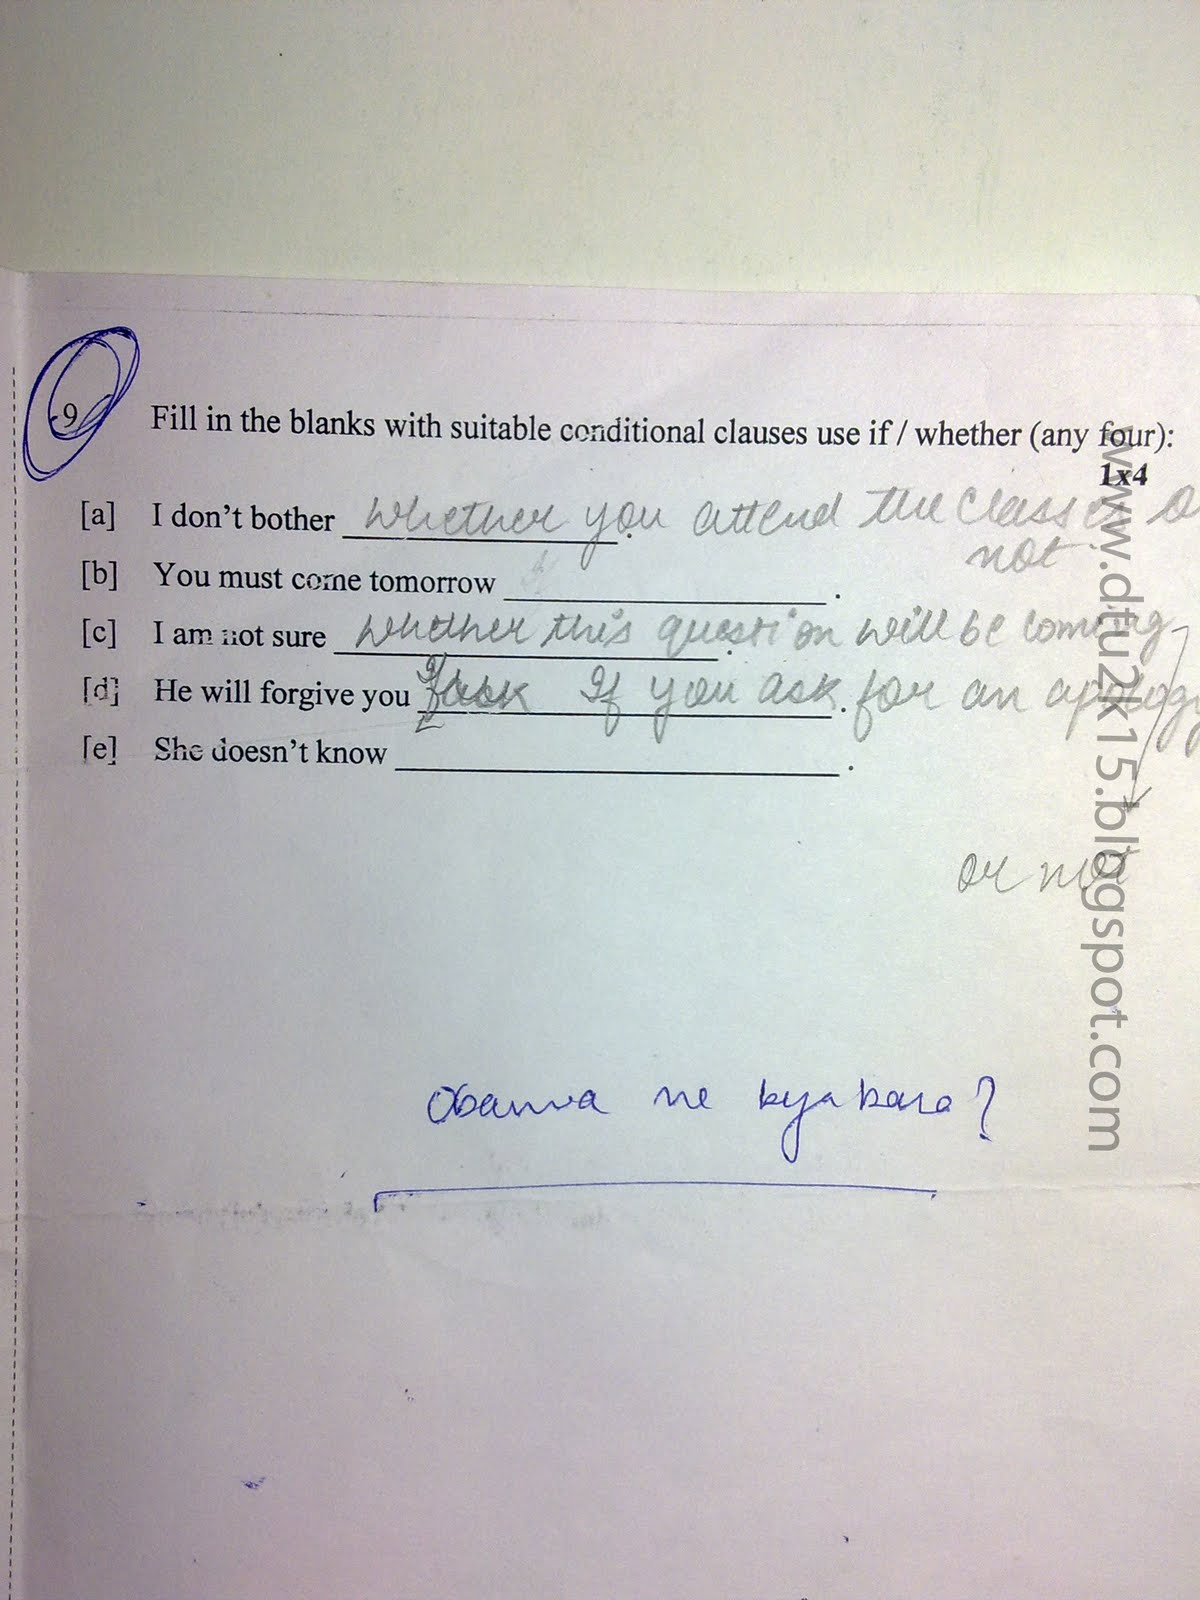 9 Fill in the blanks with suitable conditional clauses use if / whether (any four):
1x4
[a] I don't bother whether you attend the classes or
not
[b] You must come tomorrow ____________ .
[c] I am not sure whether this question will be coming
[d] He will forgive you If you ask for an apology
[e] She doesn't know ____________ .
or not
Obama ne kya kara?
www.dtu2k15.blogspot.com